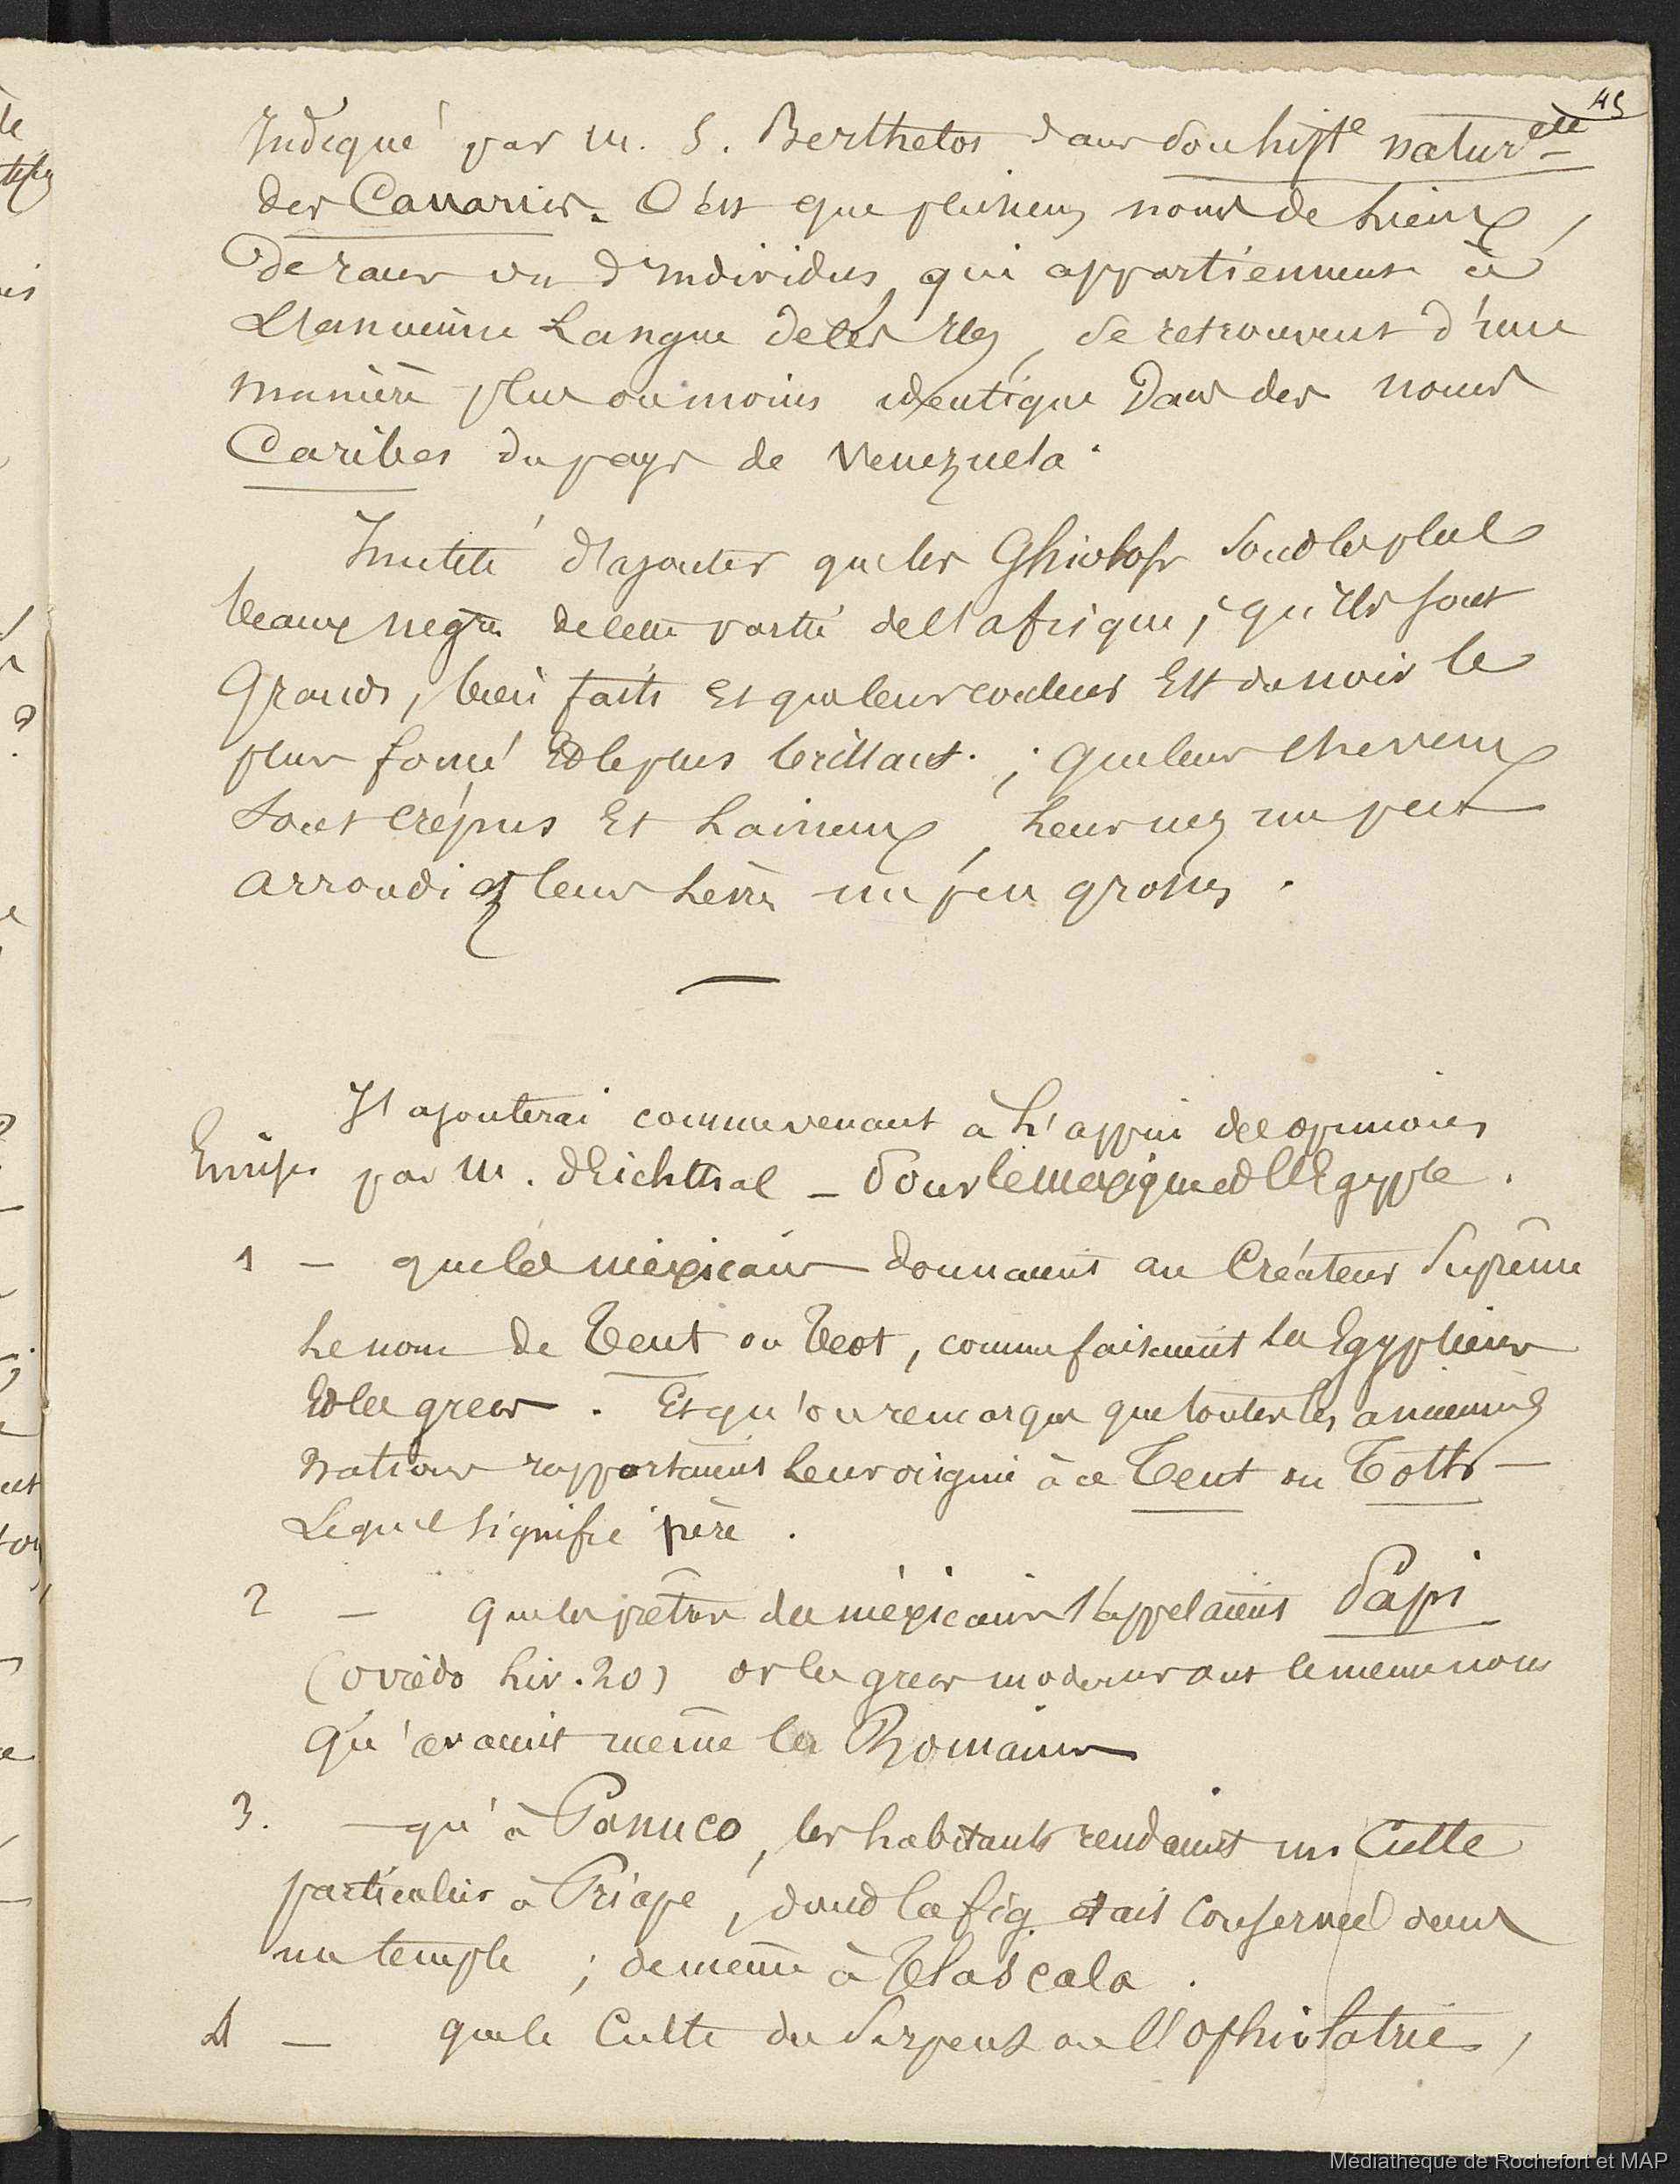 45
Indiqué par M. S. Berthelot dans son histe naturelle
des Canaries. C'est que plusieurs noms de Lieux,
de races ou d'Individus, qui appartiennent à
L'ancienne Langue de ces Iles, se retrouvent d'une
manière plus ou moins identique dans des noms
Caribes du pays de Venezuela.
Inutile d'ajouter que les Ghiolofs sont les plus
beaux negres de cette partie de l'afrique, qu'ils sont
Grands, bien faits et que leur couleur Est du noir le
plus foncé et le plus brillant. ; que leurs cheveux
sont crépus Et Laineux, Leur nez un peu
arrondi et leurs Lèvres un peu grosses.
J'ajouterai comme venant à L'appui des opinions
Emises par M. d'Eichthal - Pour le Mexique et l'Egypte.
1 - que les mexicains donnaient au Créateur Suprême
Le nom de Teut ou Teot, comme faisaient les Egyptiens
et les grecs. Et qu'on remarque que toutes les anciennes
nations rapportaient Leur origine à ce Teut ou Toth -
Lequel signifie père.
2 - que les prêtres des méxicains s'appelaient Papi
(oviédo Liv. 20) or les grecs modernes ont le meme nom
qu'avaient même les Romains
3. - qu'à Panuco, les habitants rendaient un Culte
particulier à Priape, dont la fig. était Conservée dans
un temple ; de meme à Tlascala.
4 - que le Culte du Serpent ou l'Ophiolatrie,
Médiathèque de Rochefort et MAP